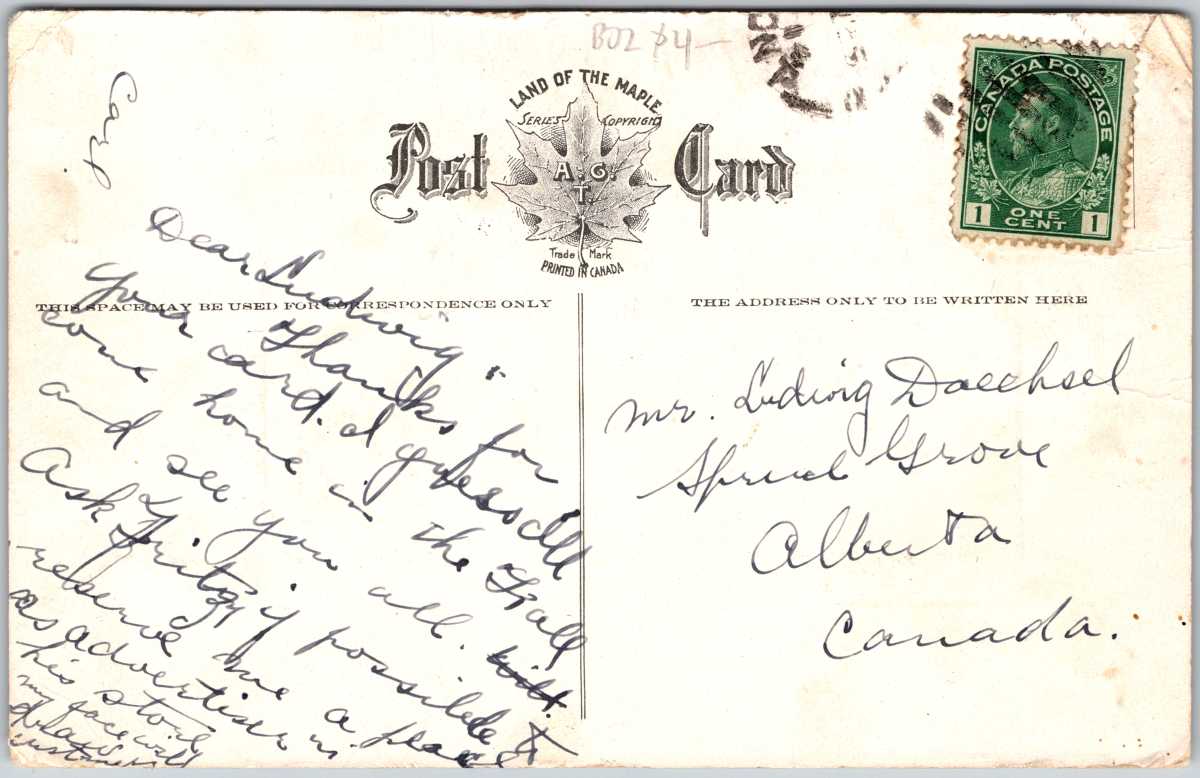 B02 $4-
LAND OF THE MAPLE
SERIES COPYRIGHT
Post Card
A. G.
T.
Trade Mark
PRINTED IN CANADA
CANADA POSTAGE
1 ONE CENT 1
THIS SPACE MAY BE USED FOR CORRESPONDENCE ONLY
THE ADDRESS ONLY TO BE WRITTEN HERE
Carl
Dear Ludwig"
Thanks for
your card. I guess I'll
come home in the Fall
and see you all.
Ask Fritz if possible to
reserve me a place
as advertiser in
his store
my face will
draw
customers
Mr. Ludwig Daechsel
Spruce Grove
Alberta
Canada.